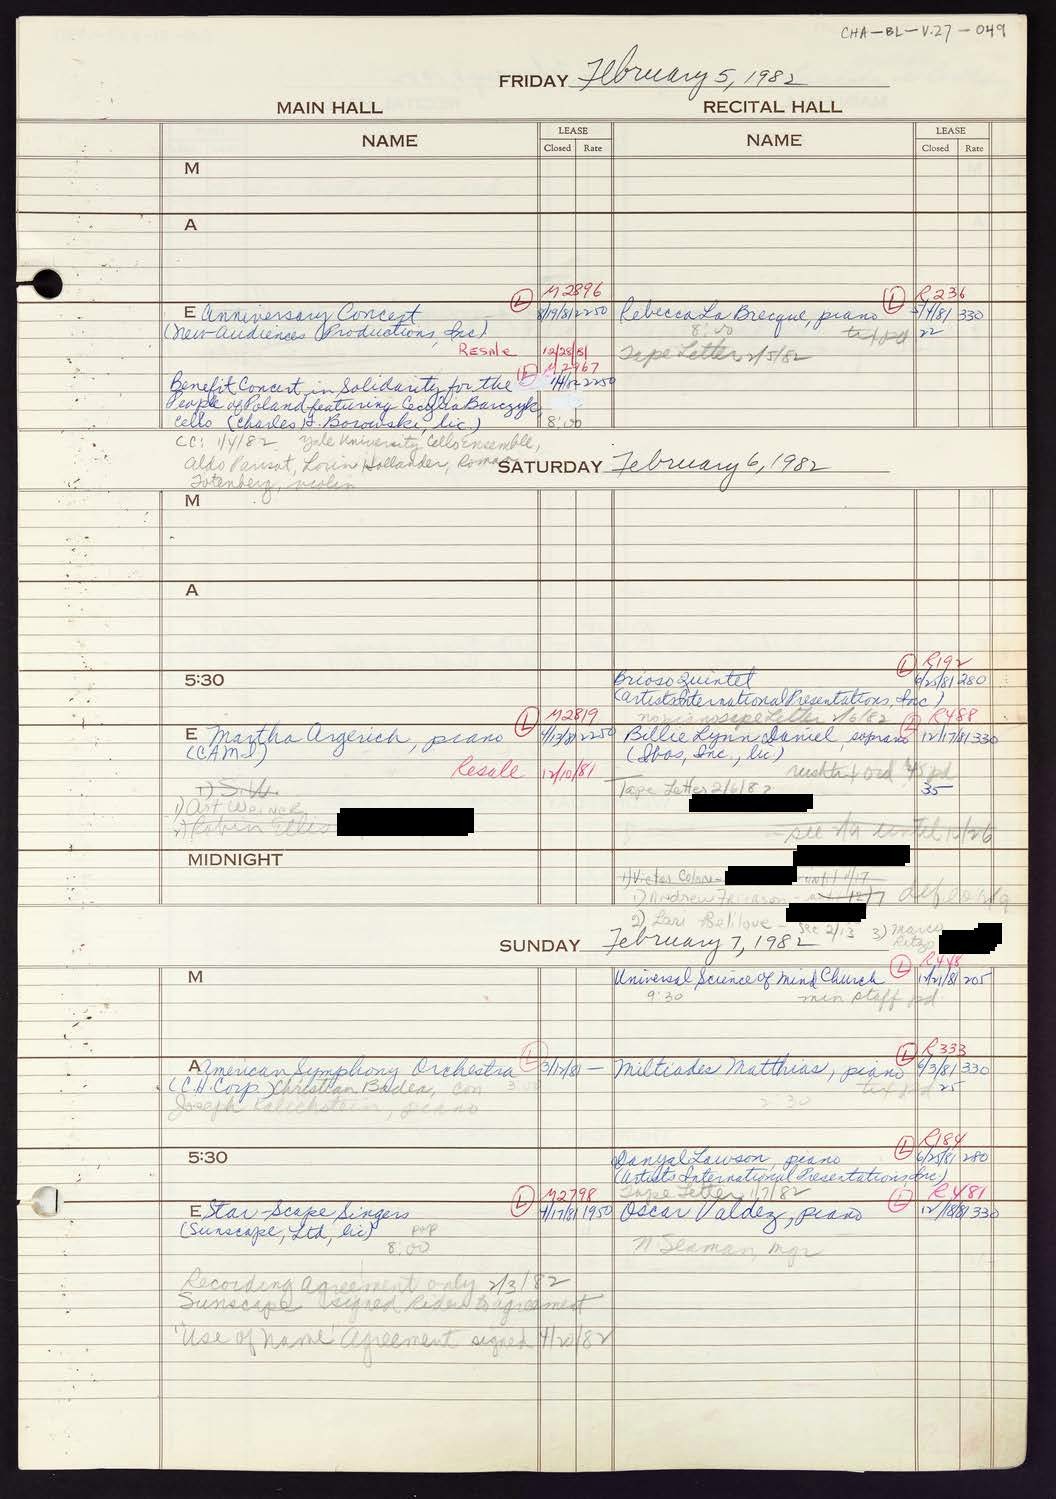 CHA-BL-V.27-049
FRIDAY February 5, 1982
MAIN HALL RECITAL HALL
NAME LEASE Closed Rate NAME LEASE Closed Rate
M
A
L M2896
E Anniversary Concert 8/19/81 2250
(New Audiences Productions, Inc)
Resale 12/28/81
L M2967
Benefit Concert in Solidarity for the 2250
People of Poland featuring Cecylia Barczyk,
cello (Charles H. Borowski, lic.) 8:00
CC: 1/4/82 Yale University Cello Ensemble,
Aldo Parisot, Lorin Hollander, Roman
Totenberg, violin
L R236
Rebecca La Brecque, piano 5/4/81 330
8:00 tix pd 22
Tape Letter 2/5/82
SATURDAY February 6, 1982
M
A
5:30
L R192
Brioso Quintet 6/25/81 280
(Artists International Presentations, Inc)
Tape Letter 2/6/82
L M2819
E Martha Argerich, piano 4/13/81 2250
(CAMI)
Resale 12/10/81
1) S.H.
1) Art Weiner
2) Robin Ellis
L R488
Billie Lynn Daniel, soprano 12/17/81 330
(Ibos, Inc., lic)
rush tix ord 45 pd
Tape Letter 2/6/82 35
MIDNIGHT
1) Victor Colano - until 11/17
1) Andrew
2) Lari Belilove - see 2/13 3) Marco
SUNDAY February 7, 1982
M
L R448
Universal Science of Mind Church 205
9:30 min staff pd
L
American Symphony Orchestra 3/17/81 —
(C.H. Corp.) Christian Badea, con 3:00
Joseph Kalichstein, piano
L R333
Miltiades Matthias, piano 9/3/81 330
2:30 tix pd 25
5:30
L R184
Danyal Lawson, piano 6/25/81 280
(Artists International Presentations, Inc)
Tape Letter 1/7/82
L M2798
E Star-Scape Singers 1950
(Sunscape, Ltd, lic) pop
8:00
L R481
Oscar Valdez, piano 12/18/81 330
N Seaman, mgr
Recording Agreement only 2/3/82
Sunscape signed Rider to agreement
"Use of Name" Agreement signed 4/20/82